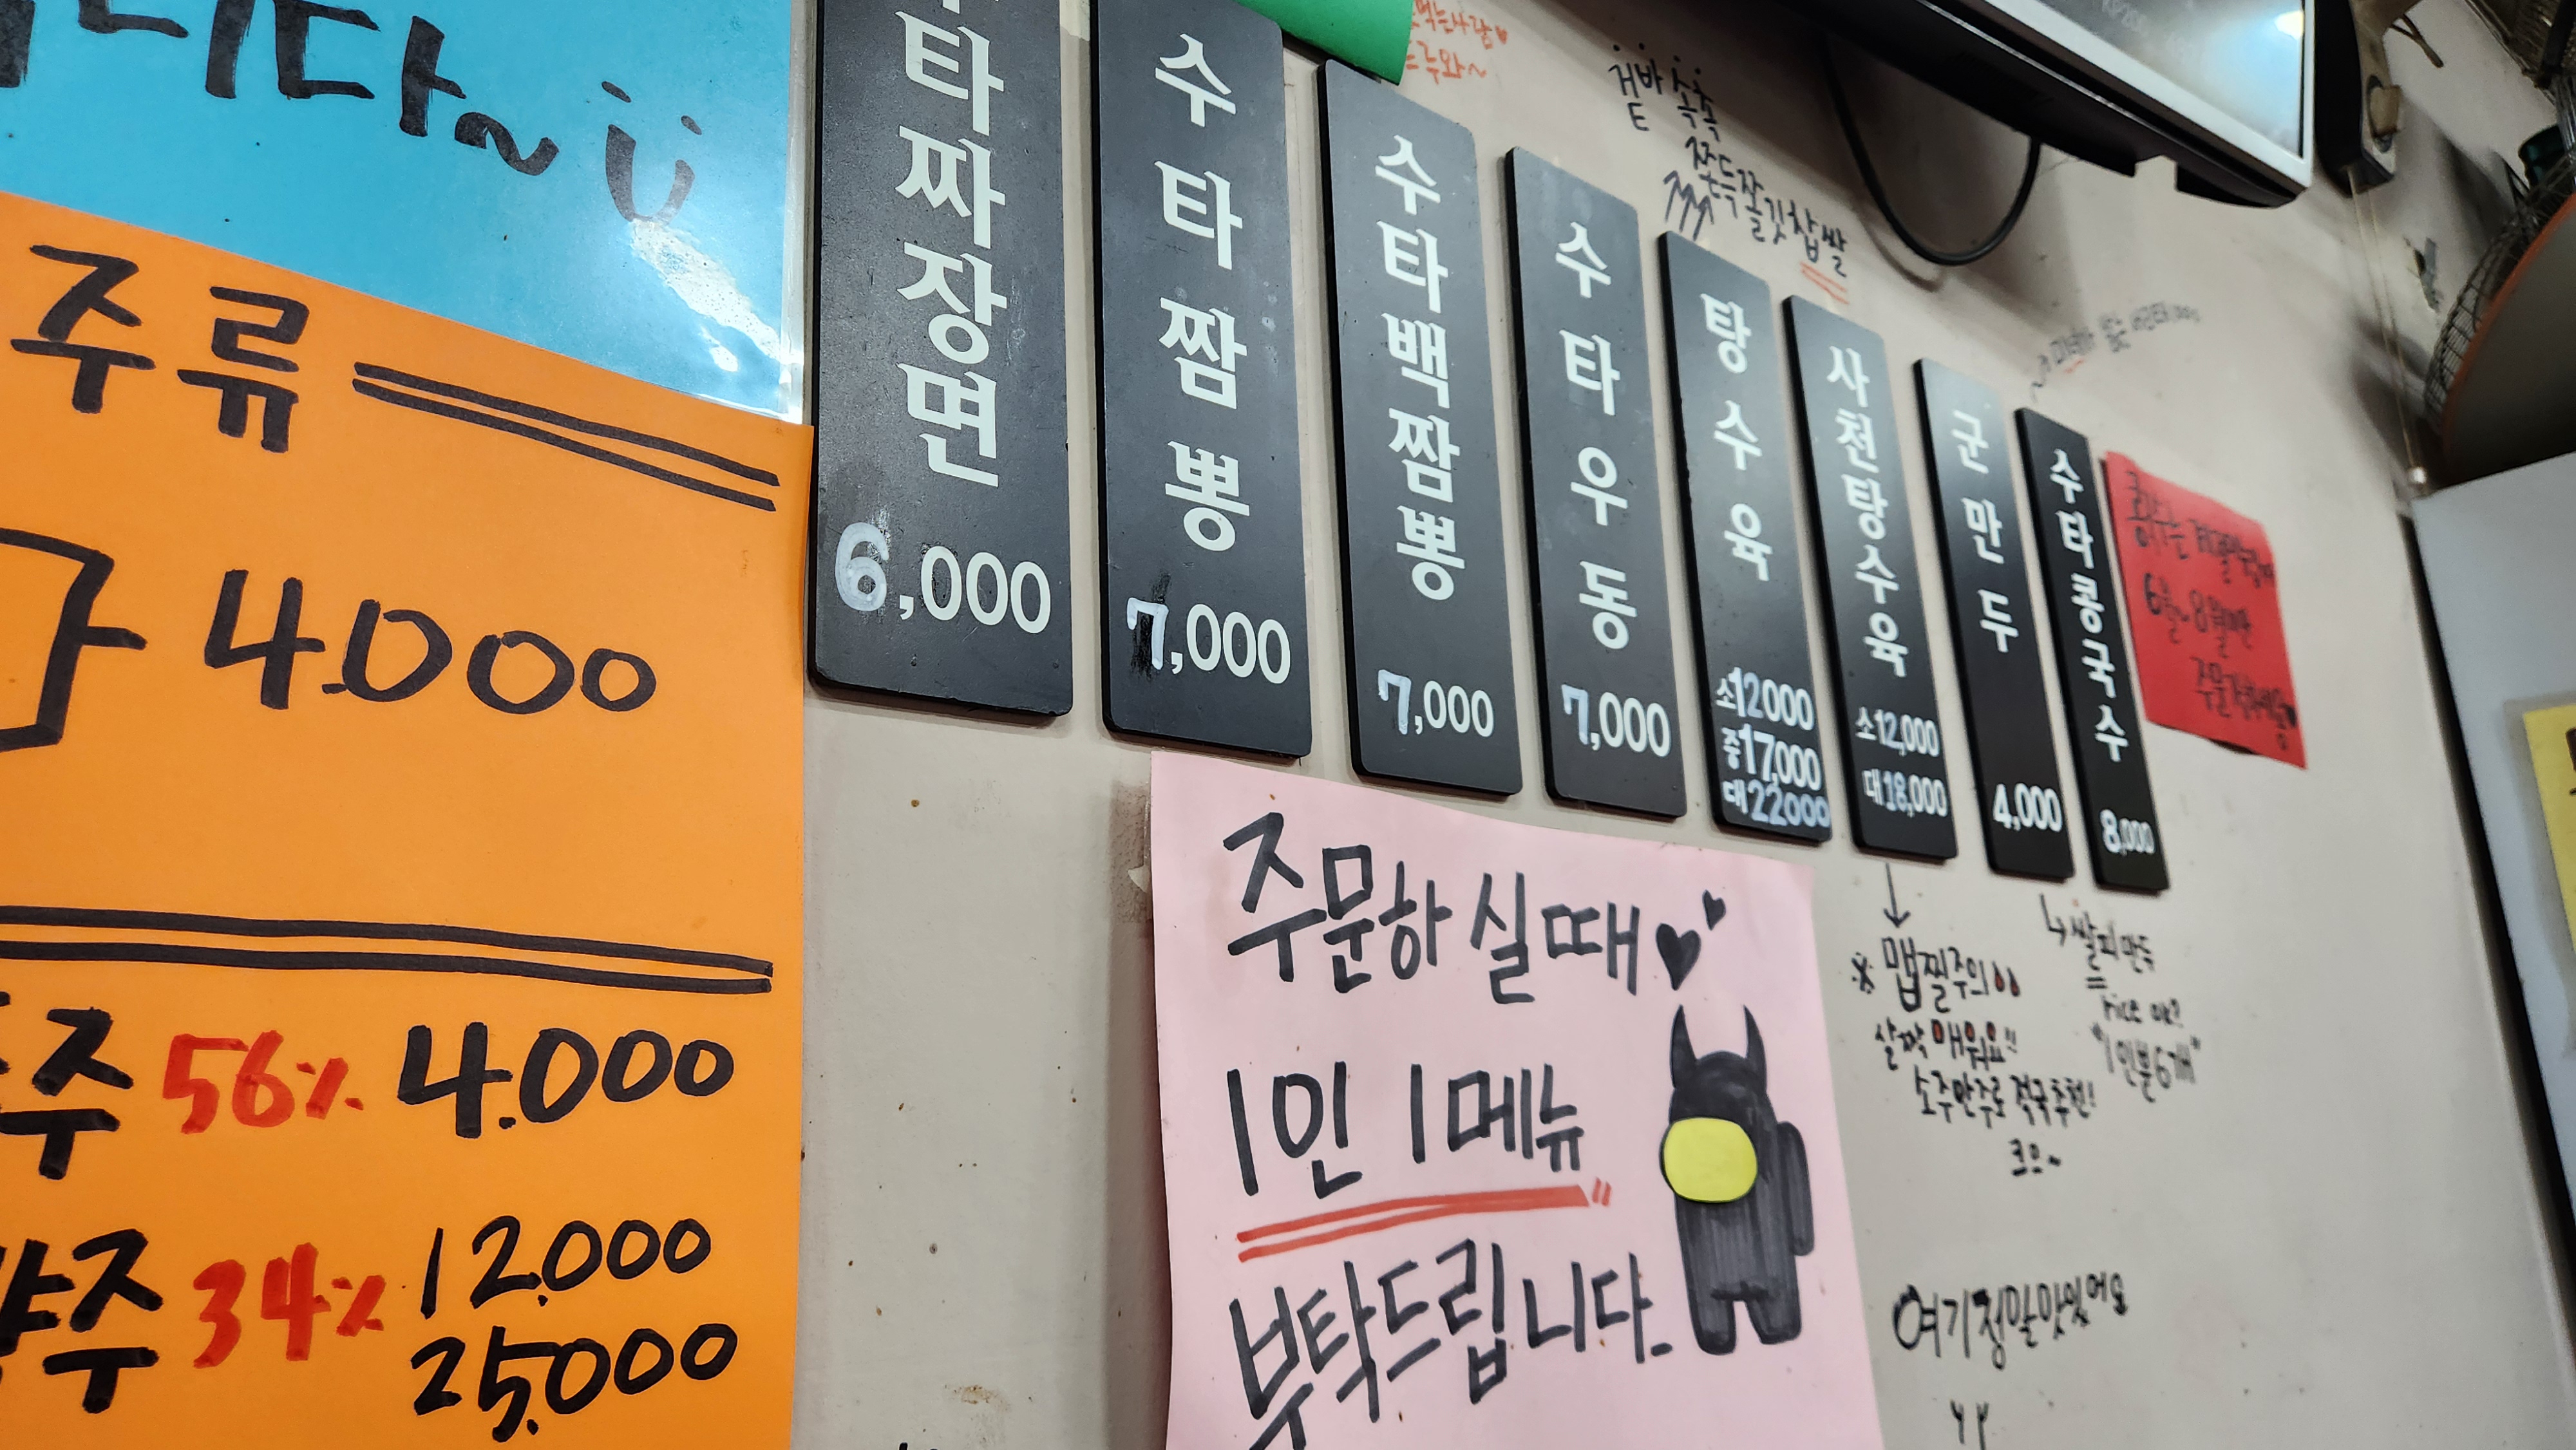 니다~
주류
4.000
주 56% 4.000
주 34% 12.000
25.000
수타짜장면
6,000
수타짬뽕
7,000
수타백짬뽕
7,000
수타우동
7,000
탕수육
소12000
중17,000
대22000
사천탕수육
소12,000
대18,000
군만두
4,000
수타콩국수
8,000
겉바속촉
쫀득쫄깃찹쌀
6월~8월만
주문하실때
1인 1메뉴
부탁드립니다.
※ 맵찔주의
살짝 매워요!!
소주안주로 적극추천!
크으~
쌀피만두
"1인분6개"
여기정말맛있어요